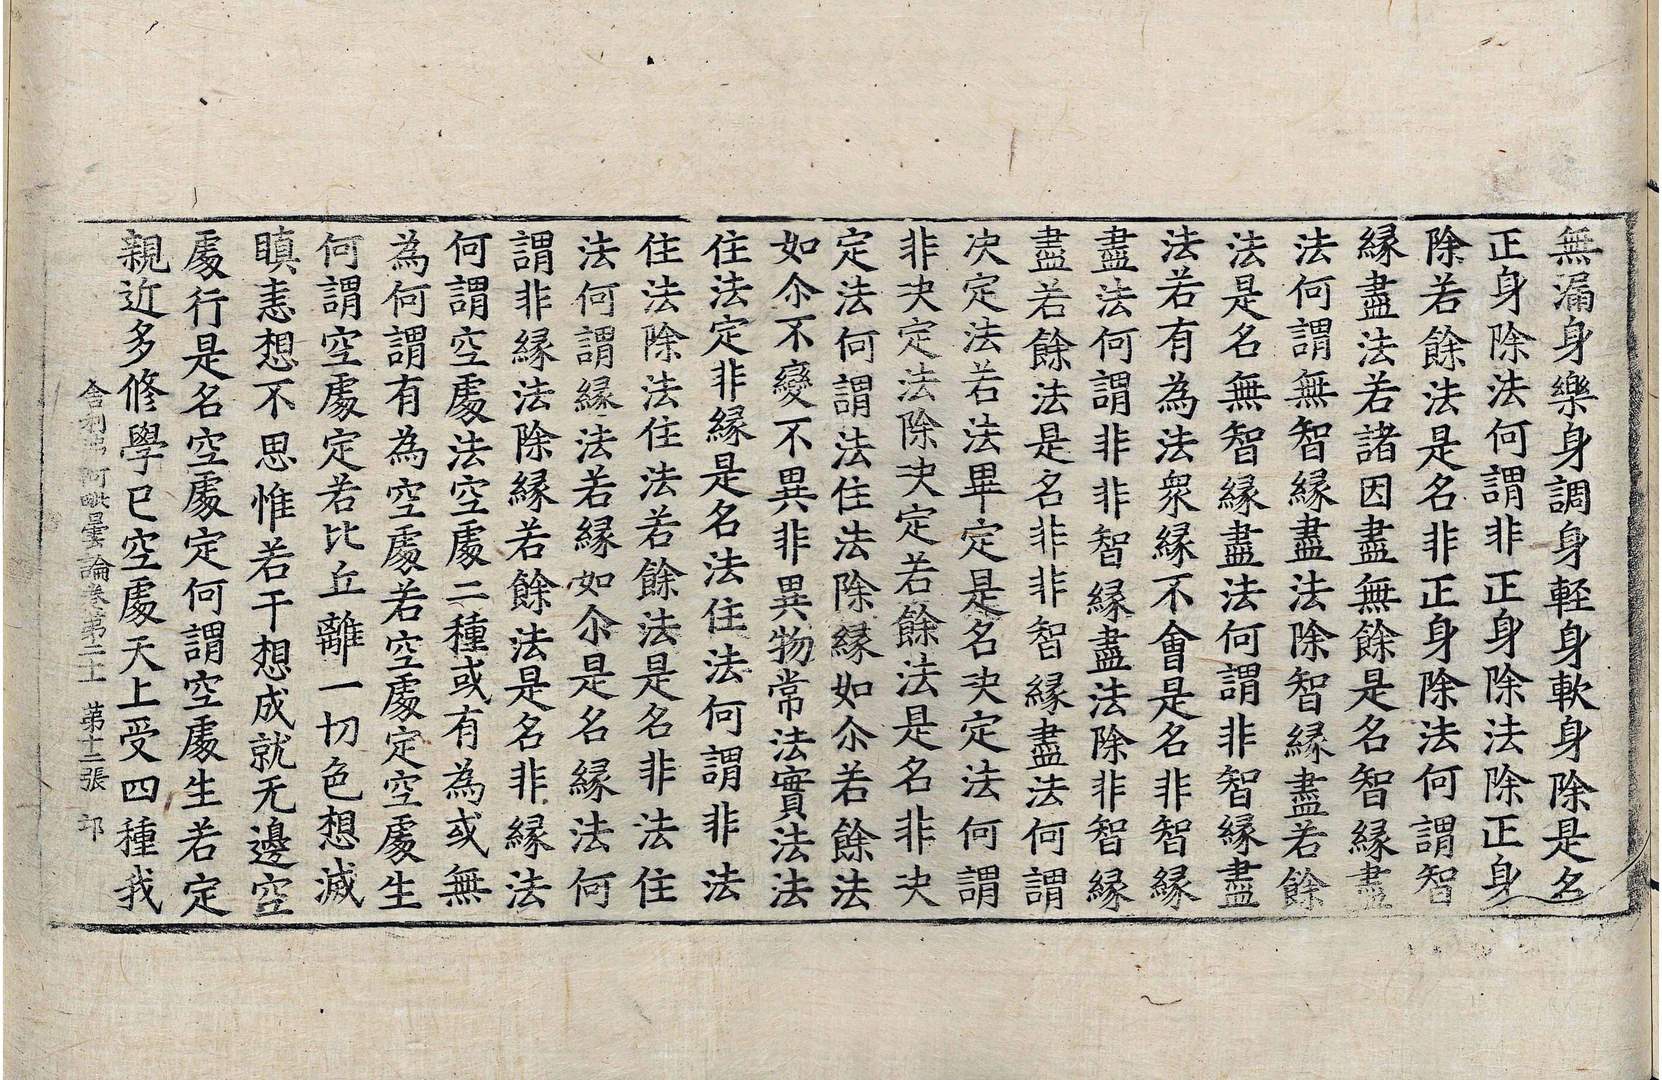 無漏身樂身調身輕身軟身除是名
正身除法何謂非正身除法除正身
除若餘法是名非正身除法何謂智
縁盡法若諸因盡無餘是名智縁盡
法何謂無智縁盡法除智縁盡若餘
法是名無智縁盡法何謂非智縁盡
法若有為法衆縁不會是名非智縁
盡法何謂非非智縁盡法除非智縁
盡若餘法是名非非智縁盡法何謂
决定法若法畢定是名决定法何謂
非决定法除决定若餘法是名非决
定法何謂法住法除縁如尒若餘法
如尒不變不異非異物常法實法法
住法定非縁是名法住法何謂非法
住法除法住法若餘法是名非法住
法何謂縁法若縁如尒是名縁法何
謂非縁法除縁若餘法是名非縁法
何謂空處法空處二種或有為或無
為何謂有為空處若空處定空處生
何謂空處定若比丘離一切色想滅
瞋恚想不思惟若干想成就无邊空
處行是名空處定何謂空處生若定
親近多修學已空處天上受四種我
舎利弗阿毗曇論卷第二十 第十二張 卭